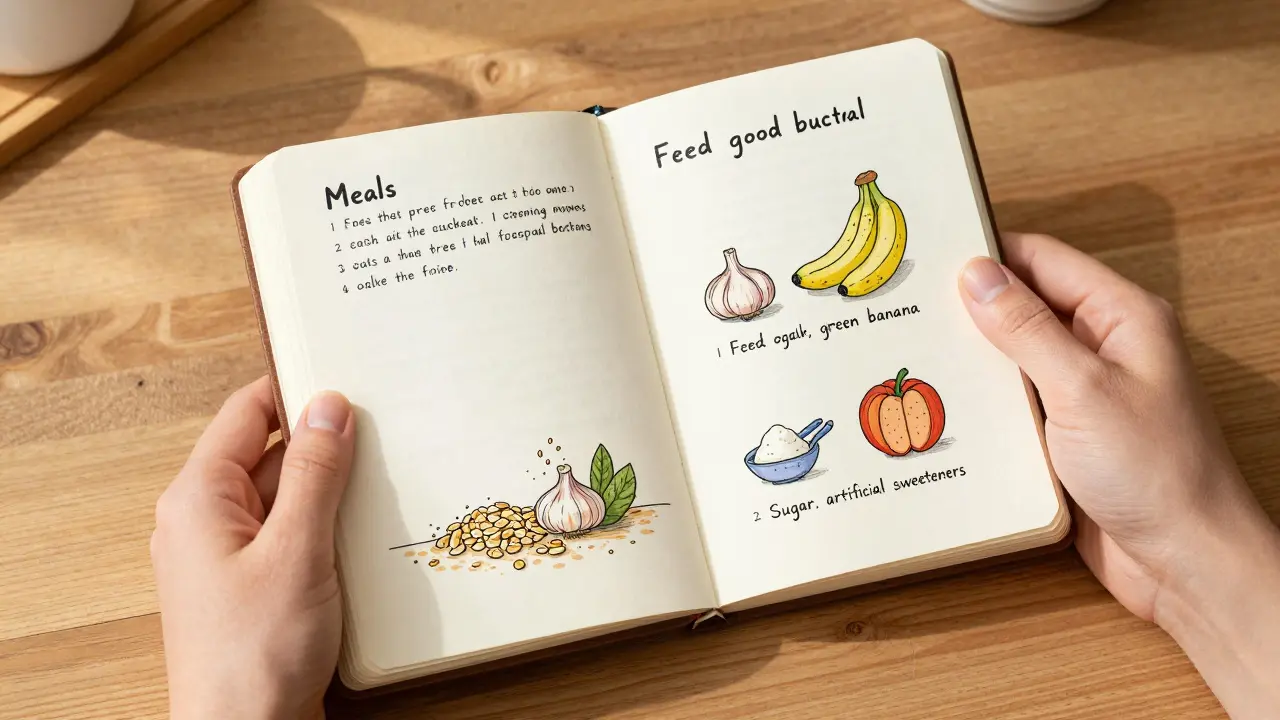 Meals
1 Foes that pree frdoet act t hoo one.)
2 eash oit the auckeat. I csenning moves
3 oats a thas tree I hal foespail bostans
4 oslke the foine.
Feed good buctral
1 Feed ogalk, green banana
2 Sugar. artificial sweeteners